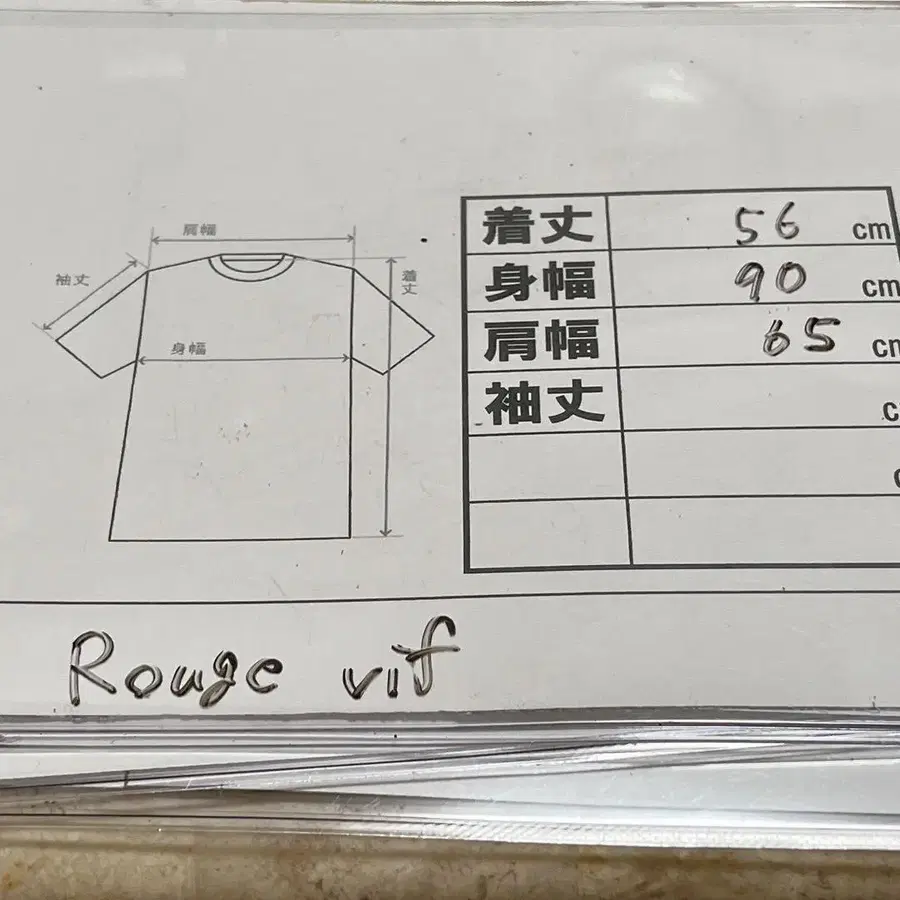 肩幅
袖丈
着丈
身幅
着丈 56 cm
身幅 90 cm
肩幅 65 cm
袖丈 c
c
Rouge vif